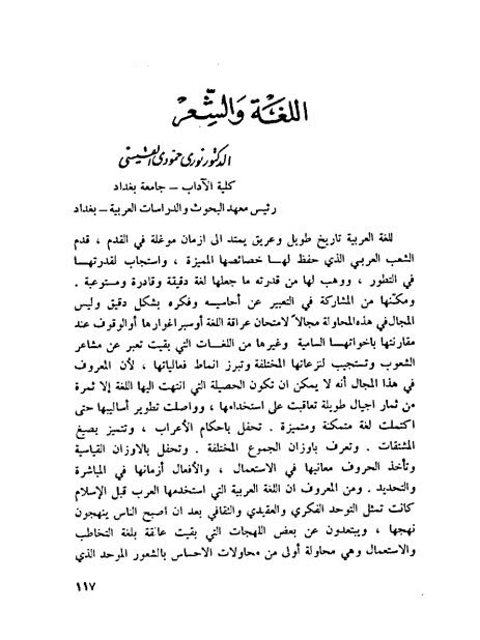 اللغَة وَالشِّعر
الدكتور نوري حمودي القيسي
كلية الآداب – جامعة بغداد
رئيس معهد البحوث والدراسات العربية – بغداد
للغة العربية تاريخ طويل وعريق يمتد الى ازمان موغلة في القدم ، قدم
الشعب العربي الذي حفظ لهـا خصائصها المميزة ، واستجاب لقدرتهـا
في التطور ، ووهب لها من قدرته ما جعلها لغة دقيقة وقادرة ومستوعبة .
ومكّنها من المشاركة في التعبير عن أحاسيسه وفكره بشكل دقيق وليس
المجال في هذه المحاولة مجالاً لامتحان عراقة اللغة أوسبراغوارها أوالوقوف عند
مقارنتها باخواتهـا السامية وغيرها من اللغـات التي بقيت تعبر عن مشاعر
الشعوب وتستجيب لنزعاتها المختلفة وتبرز انماط فعالياتها ، لأن المعروف
في هذا المجال أنه لا يمكن ان تكون الحصيلة التي انتهت اليها اللغة إلا ثمرة
من ثمار اجيال طويلة تعاقبت على استخدامها ، وواصلت تطوير أساليبها حتى
اكتملت لغة متمكنة ومتميزة . تحفل باحكام الأعراب ، وتتميز بصيغ
المشتقات . وتعرف باوزان الجموع المختلفة . وتحفل بالاوزان القياسية
وتأخذ الحروف معانيها في الاستعمال ، والأفعال أزمانها في المباشرة
والتحديد . ومن المعروف ان اللغة العربية التي استخدمها العرب قبل الإسلام
كانت تمثل التوحد الفكري والعقيدي والثقافي بعد ان اصبح الناس ينهجون
نهجها ، ويبتعدون عن بعض اللهجات التي بقيت عالقة بلغة التخاطب
والاستعمال وهي محاولة أولى من محاولات الاحساس بالشعور الموحد الذي
١١٧